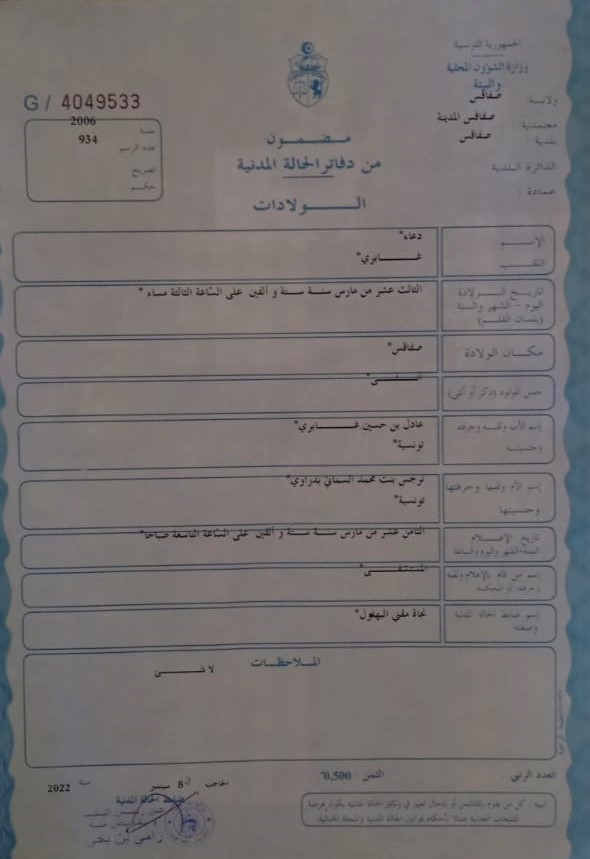 الجمهورية التونسية
وزارة الشؤون المحلية
والبيئة
ولاية : صفاقس
معتمدية : صفاقس المدينة
بلدية : صفاقس
الدائرة البلدية
عمادة :
G / 4049533
سنة 2006
عدد الرسم 934
تصريح
حكم
مضمون
من دفاتر الحالة المدنية
الولادات
الإسم دعاء*
اللقب غابري*
تاريخ الولادة
اليوم - الشهر والسنة
(بلسان القلم)
الثالث عشر من مارس سنة ستة و ألفين على الساعة الثالثة مساء *
مكان الولادة صفاقس*
جنس المولود (ذكر أو أنثى) أنثى*
إسم الأب ولقبه وحرفته عادل بن حسين غابري*
وجنسيته تونسية*
إسم الأم ولقبها وحرفتها نرجس بنت محمد السماي بدراوي*
وجنسيتها تونسية*
تاريخ الإعلام
السنة-الشهر واليوم والساعة
الثامن عشر من مارس سنة ستة و ألفين على الساعة التاسعة صباحا*
إسم من قام بالإعلام ولقبه
وحرفته أو المحكمة
المستشفى*
إسم ضابط الحالة المدنية
وصفته
نجاة مفني البهلول*
الملاحظات
لا شئ
العدد الرتبي
الثمن : 0,500
الحاجب في 8 سبتمبر سنة 2022
ضابط الحالة المدنية
تنبيه : كل من يقوم بالتدليس أو إدخال تغيير في وثائق الحالة المدنية يكون عرضة
للتتبعات العدلية عملا بأحكام قوانين الحالة المدنية والمجلة الجنائية.